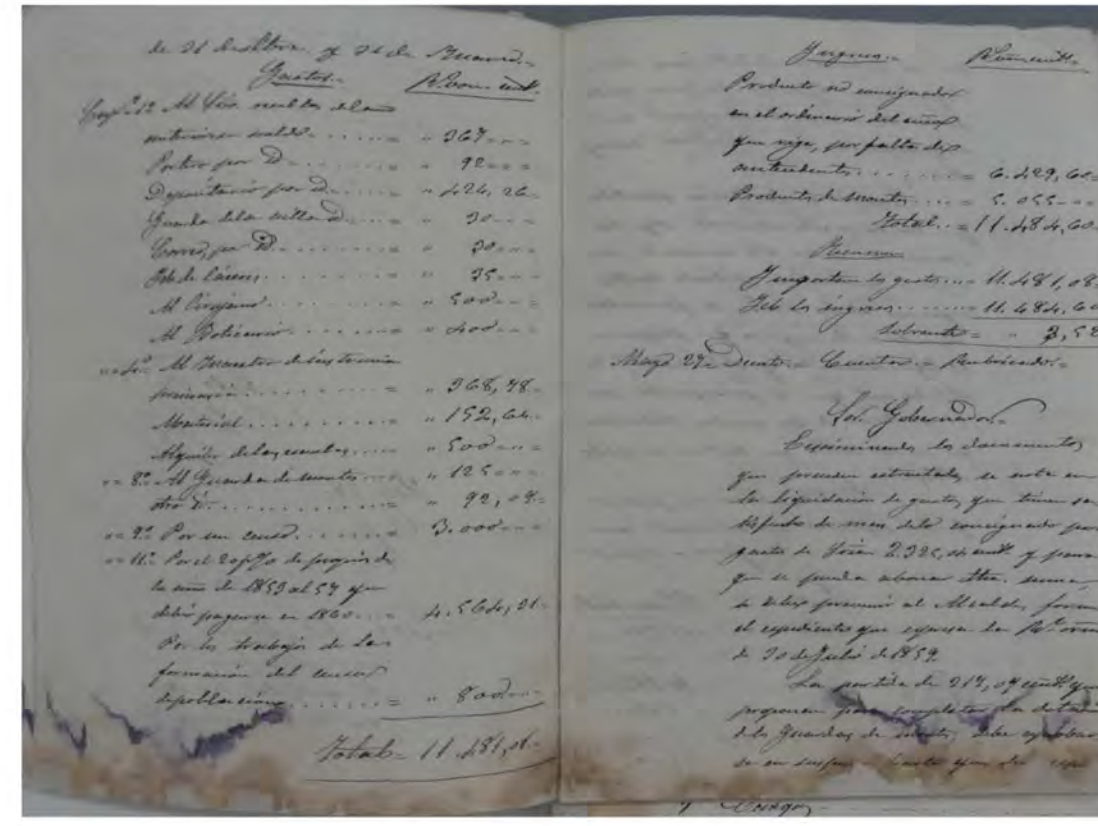 de 31 de Dbre. y 31 de Enero.=
Gastos.=
Rs. von. cent.
Al Srio.
anterior saldo = " 367
Portero por Yd = " 92
Depositario por Yd = " 426, 26
Guarda de la villa Yd = " 30
Correo, por Yd = " 30
de Cárcel = " 35
Al Cirujano = " 500
Al Boticario = " 400
" = 4º Al Maestro de instrucción
primaria = " 368, 78
Material = " 152, 64
Alquiler de las escuelas = " 500
" = 8º Al Guarda de montes = " 125
otro Yd = " 92, 08
" = 9º Por un censo = 3.000
" = 11º Por el 20 p% de propios de
los años de 1853 al 57 que
debió pagarse en 1860 = 4.564, 31
Por los trabajos de la
formación del censo
de población = " 800
Total = 11.481, 08
Yngresos.=
Rs. von. cent.
Producto no consignado
en el ordinario del año
que rige, por falta de
antecedentes = 6.429, 60
Producto de montes = 5.055
Total = 11.484, 60
Resumen
Ymportan los gastos = 11.481, 08
Yd. los ingresos = 11.484, 60
Sobrante = " 3, 52
Mayo 29 = = Rubricado.=
Sor. Gobernador.=
Examinando los documentos
que preceden estractados, se nota en
la liquidación de gastos, que tienen sa
tisfecho de mas de lo consignado por
gastos de 2.325, cent. y para
que se pueda abonar dha. suma,
se debe prevenir al Alcalde, forme
el expediente que espresa la Rl. orden
de 30 de Julio de 1859.
La partida de 217, 08 cent. que
proponen para completar la dotación
de los Guardas de montes, debe
en